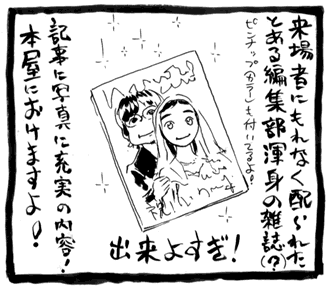 来場者にもれなく配られた
とある編集部渾身の雑誌(?)
ピンナップ(カラー)も付いてるよ!
記事に写真に充実の内容!
本屋におけますよ!
出来よすぎ!